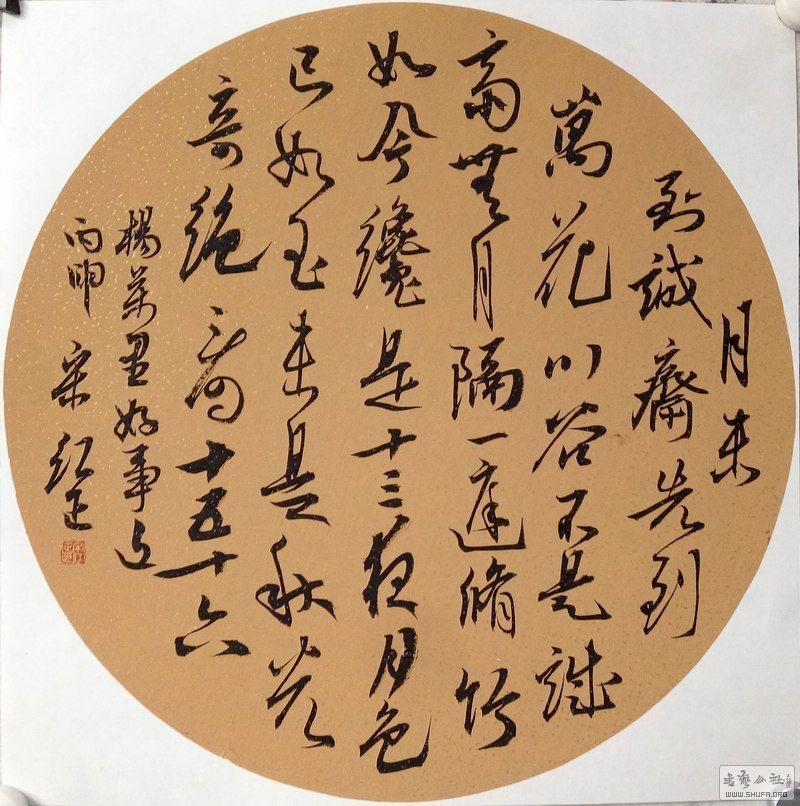 月未
到誠齋先到
萬花川谷不是誠
齋無月隔一庭脩竹
如今纔是十三夜月色
已如玉未是秋光
奇絕看十五十六
楊萬里好事近
丙申 宋红
書藝公社
WWW.SHUFA.ORG